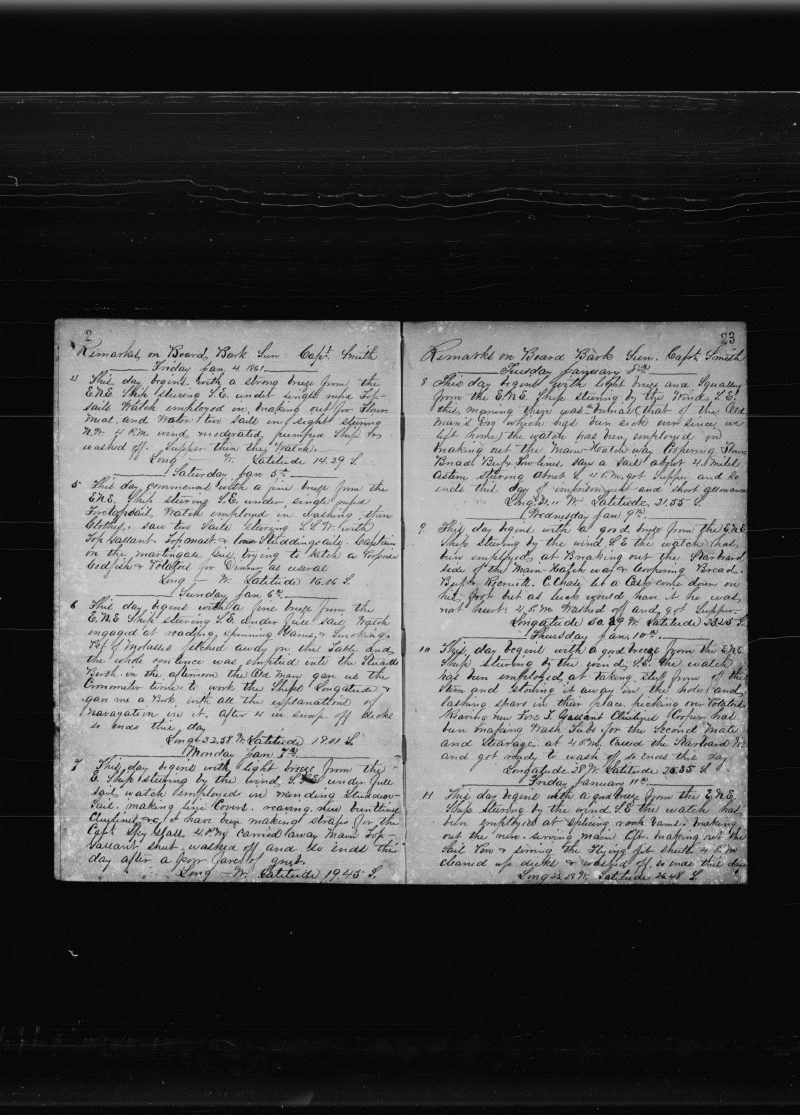 2
Remarks on Board Bark Sun Capt. Smith
Friday Jan 4 1861
4 This day begins with a strong breeze from the
E.N.E. Ship steering S.E. under single reefd Top-
sails Watch employed in breaking out for Flour
Meat and Water two sails in sight steering
N.W. 4 P.M. wind moderated, pumped Ship
washed off. Supper then the Watch.
Long — W. Latitude 14.29 S.
Saturday Jan 5th
5 This day commences with a fine breeze from the
E.N.E. Ship steering S.E. under single reefd
Foretopsail, Watch employed in washing their
Clothes. saw two Sails steering S.S.W. with
Top Gallant Topmast & lower Studdingsails. Captain
on the martingale guie trying to ketch a
Codfish & Potatoes for Dinner as useral
Long — W. Latitude 16.06 S.
Sunday Jan 6th
6 This day begins with a fine breeze from the
E.N.E Ship steering S.E. under full sail Watch
engaged at reading, spinning Yarns, & Smoking.
Pot of Molasses fetched away on the Table and
the whole contence was emptied into the Stuards
Berth in the afternoon the Old Man gave us the
Cronometer time to work the Ships Longatude &
gave me a Book with all the explanations of
Navagation in it, after 4 in sweep off decks
so ends this day
Long 32.58 W. Latitude 18.01 S.
Monday Jan 7th
7 This day begins with light breeze from the
E. Ship steering by the wind S.E. under full
sail, watch employed in mending Studden-
sail. making line Covers. reaving new buntlines
Cluelines &c, & have been making straps for the
Capt. Spy Glass. 4 P.M carried away Main Top-
Gallant sheet, washed off and so ends this
day after a poor farce of grut.
Long — W. Latitude 19.45 S.
23
Remarks on Board Bark Sun. Capt. Smith
Tuesday January 8th
8 This day begins with light breeze and Squally
from the E.N.E Ship steering by the Wind S.E.
this morning there was a burial (that of the Old
Man's Dog which has been sick ever since we
left home) the watch has been employed in
breaking out the Main-Hatch way Coopering Flour
Bread Beef saw a Sail about 4.5 Miles
Astern steering about S. 4 P.m. got Supper and so
ends this day of imprisonment and short allowance
Long 31.11 W. Latitude 21.55 S.
Wednesday Jan 9th
9 This day begins with a good breeze from the E.N.E
Ship steering by the wind S.E the watch has
been employed at Breaking out the Starbard
side of the Main-Hatch way & Coopering Bread.
Beef & C. Chase let a Cask come down on
his foot but as luck would have it he was
not hurt. 4 P.M. Washed off and got Supper.
Longatude 30.29 W. Latitude 23.25 S.
Thursday Jan. 10th.
10 This day begins with a good breeze from the E.N.E
Ship steering by the wind, S.E. the watch
has been employed at taking stuff from off the
Stern and stowing it away in the hole and
lashing spars in their place picking over Potatoes
Reaving new Fore T. Gallant Cluelines Cooper has
been making Wash Tubs for the Second Mate
and Stearage. at 4 P.M. Called the Starbard W.
and got ready to wash off so ends this day
Longatude 28 W. Latitude 25.35 S.
Friday January 11th
11 This day begins with a good breeze from the E.N.E,
Ship steering by the wind S.E the watch has
been employed at Splicing making
out the new. serving main lift. making not the
Sail Pen & serving the Flying jib sheets 4 P.M
cleaned up decks & washed off so ends this day
Long 25.28 W. Latitude 26.48 S.